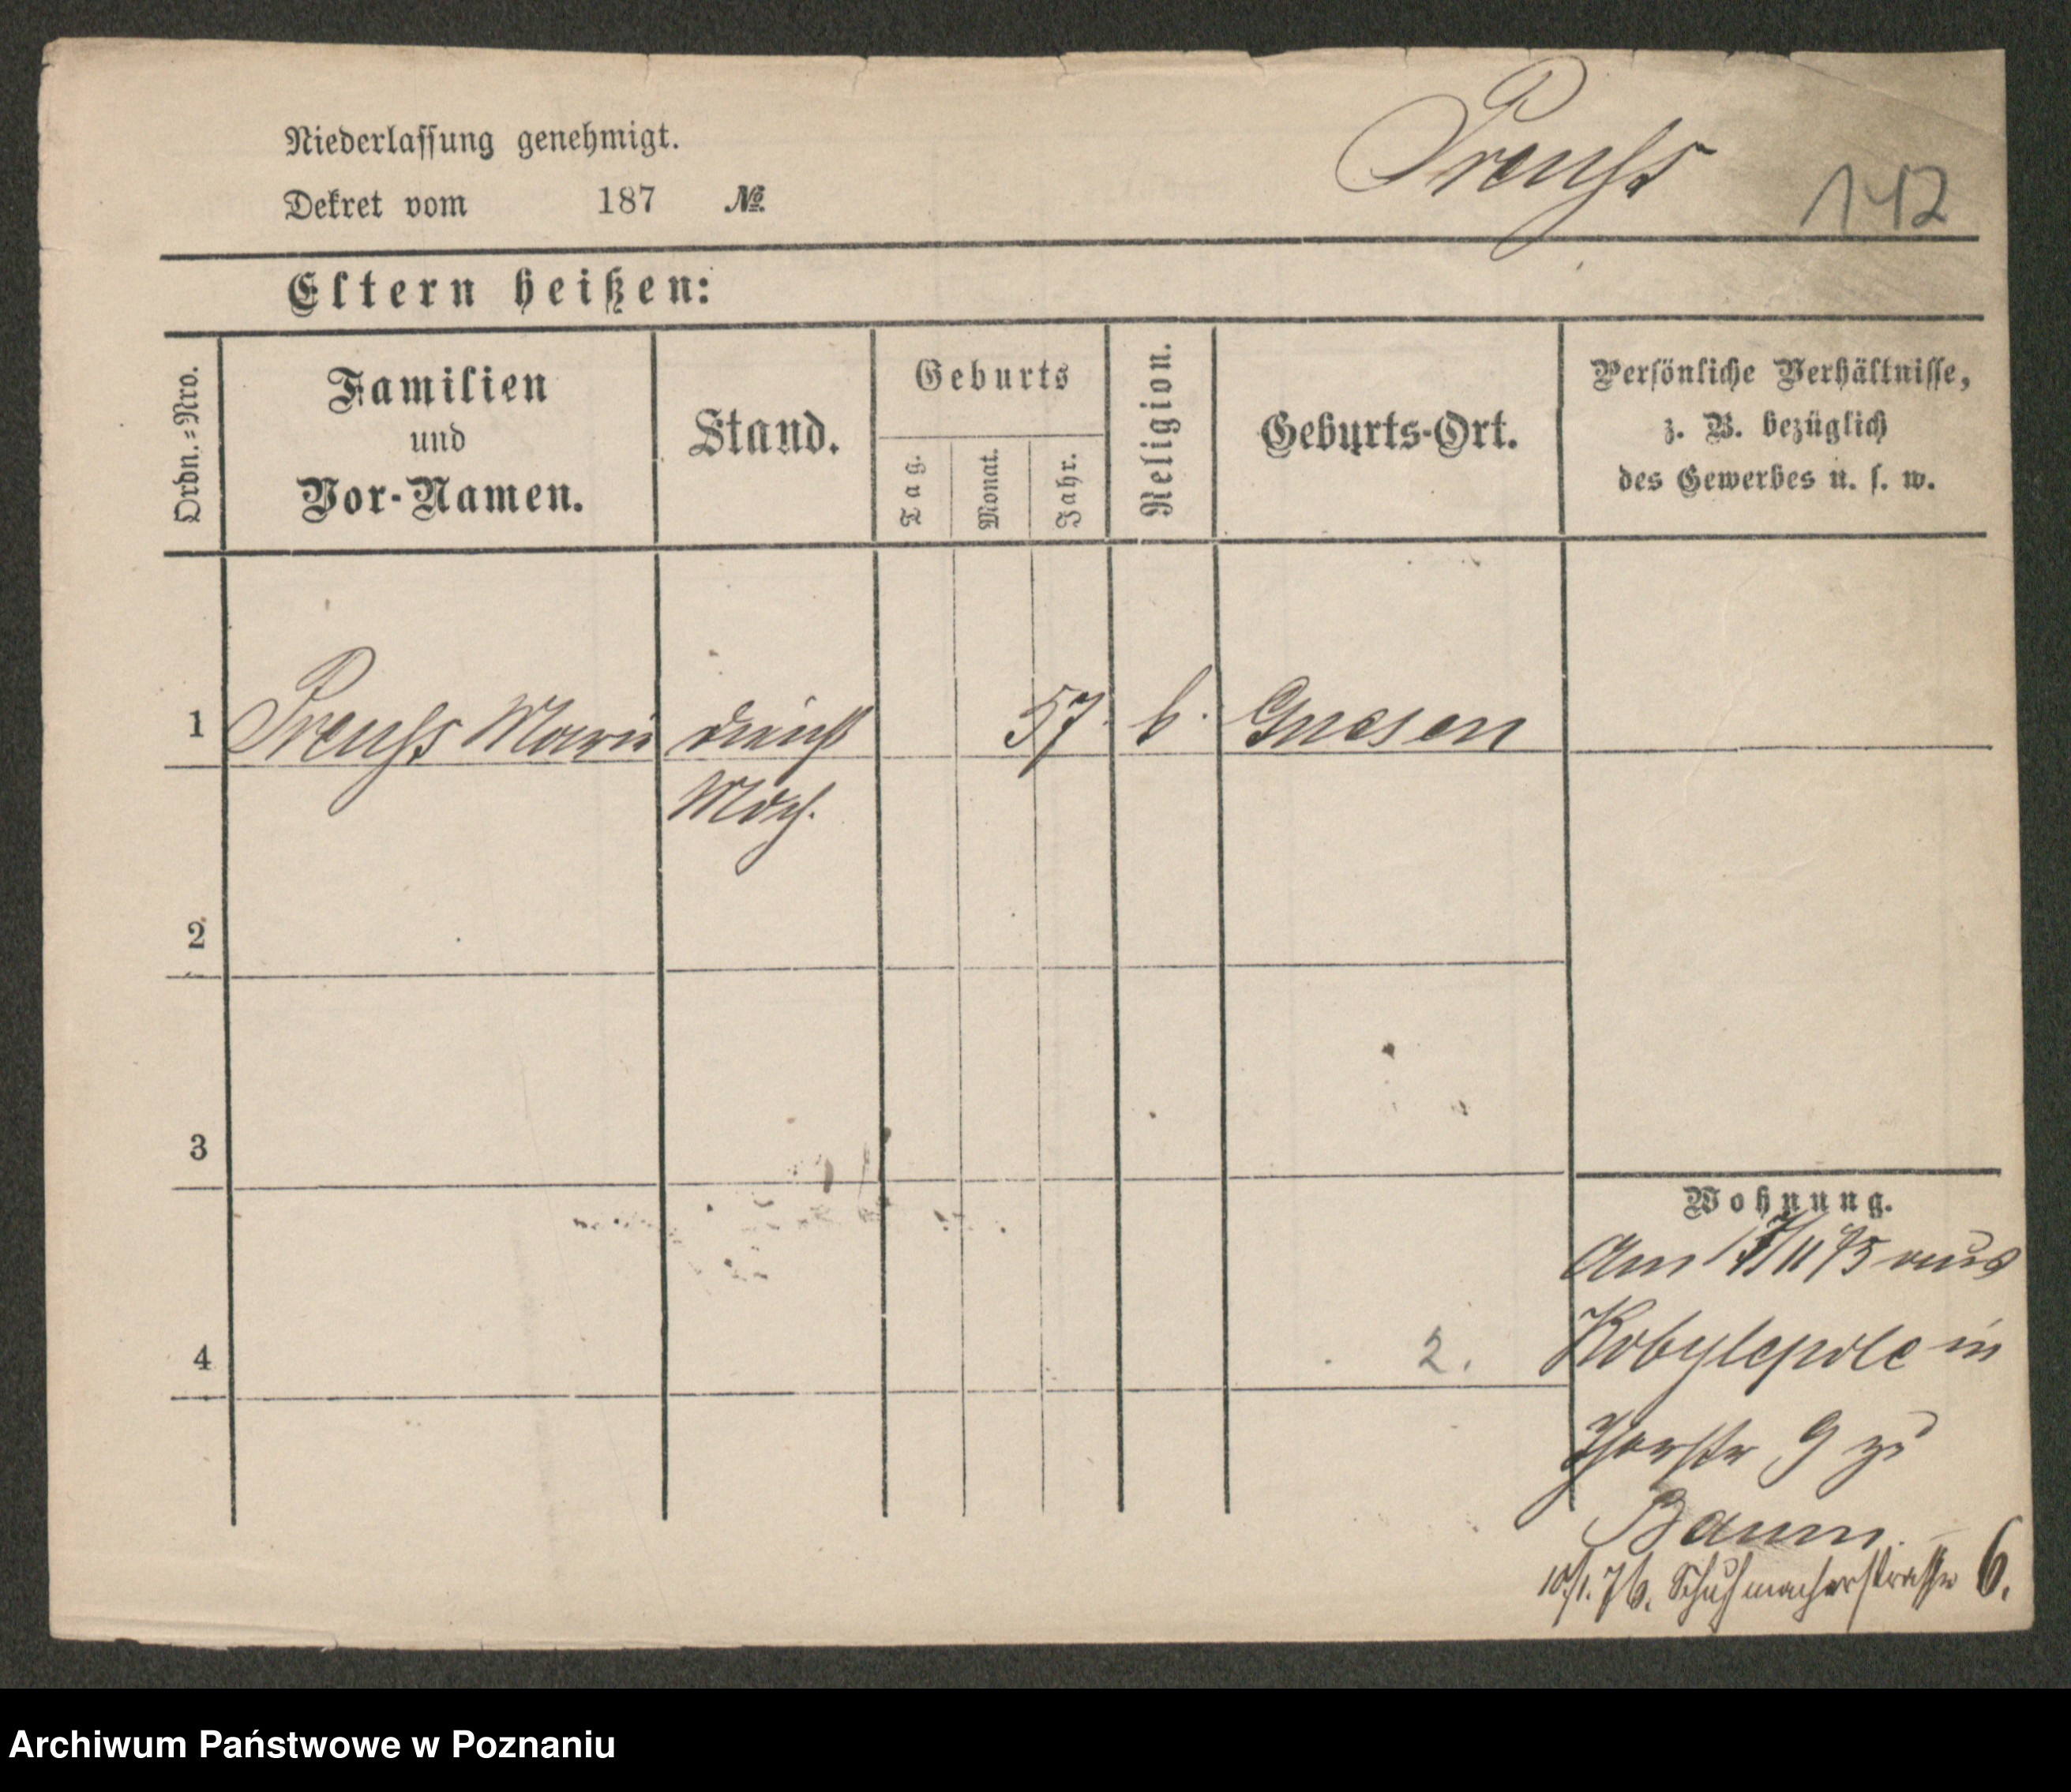 Niederlassung genehmigt.
Preuss
142
Dekret vom 187 №
Eltern heißen:
Ordn.=Nro.
Familien
und
Vor-Namen.
Stand.
Geburts
Tag.
Monat.
Jahr.
Religion.
Geburts-Ort.
Persönliche Verhältnisse,
z. B. bezüglich
des Gewerbes u. s. w.
1 Preuss Marie dienst 57. k. Gnesen
Mdch.
2
3
Wohnung.
Am 11 75 aus
4 2. Kobylepole in
9 zu
Baum.
10/1. 76. Schuhmacherstrasse 6.
Archiwum Państwowe w Poznaniu